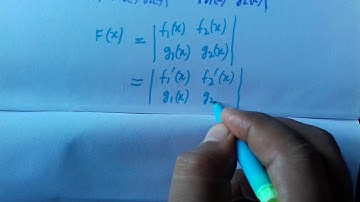 F(x) = | f₁(x) f₂(x) |
| g₁(x) g₂(x) |
= | f₁'(x) f₂'(x) |
| g₁(x) g₂ |